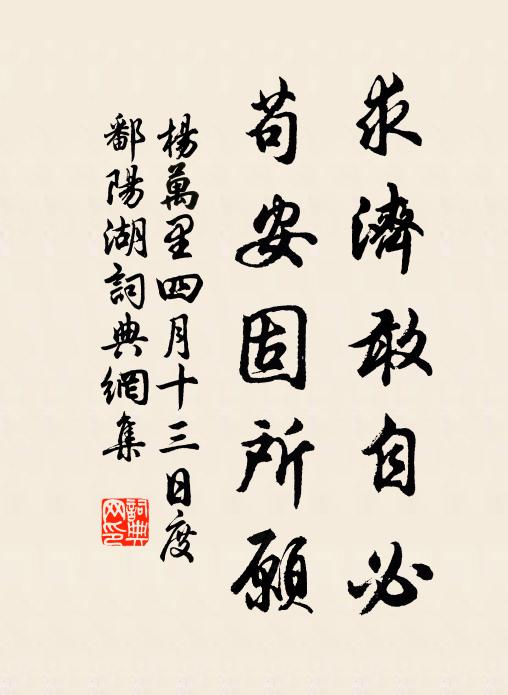 求濟敢自必
苟安固所願
楊萬里四月十三日度
鄱陽湖詞典網集
詞典
网印